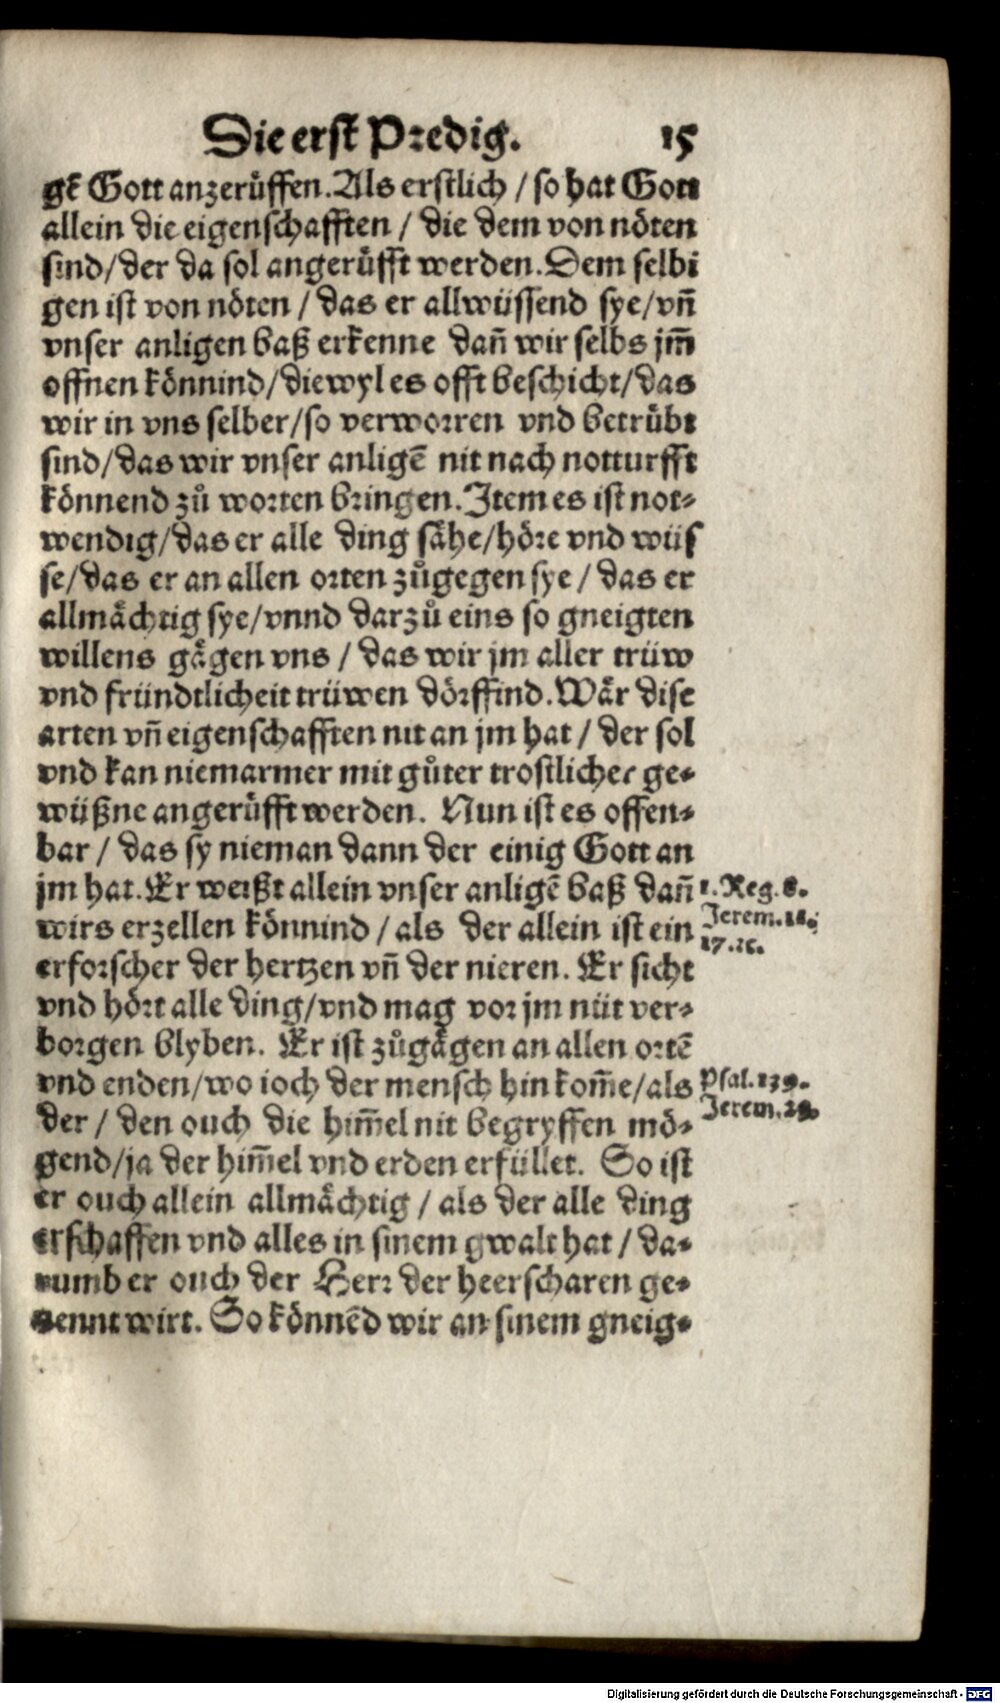 Die erst Predig. 15
gē Gott anzerůffen. Als erstlich / so hat Gott
allein die eigenschafften / die dem von nöten
sind/der da sol angerůfft werden. Dem selbi
gen ist von nöten / das er allwüssend sye/vñ
vnser anligen baß erkenne dañ wir selbs jm̃
offnen könnind/diewyl es offt beschicht/das
wir in vns selber/so verworren vnd betrübt
sind/das wir vnser anligē nit nach notturfft
könnend zů worten bringen. Item es ist not-
wendig/das er alle ding sähe/höre vnd wüs
se/das er an allen orten zůgegen sye / das er
allmächtig sye/vnnd darzů eins so gneigten
willens gägen vns / das wir jm aller trüw
vnd fründtlicheit trüwen dörffind. Wär dise
arten vñ eigenschafften nit an jm hat / der sol
vnd kan niemarmer mit gůter trostlicher ge-
wüßne angerůfft werden. Nun ist es offen-
bar / das sy nieman dann der einig Gott an
jm hat. Er weißt allein vnser anligē baß dañ
wirs erzellen könnind / als der allein ist ein
erforscher der hertzen vñ der nieren. Er sicht
vnd hört alle ding/vnd mag vor jm nüt ver-
borgen blyben. Er ist zůgägen an allen ortē
vnd enden/wo ioch der mensch hin kom̃e/als
der / den ouch die him̃el nit begryffen mö-
gend/ja der him̃el vnd erden erfüllet. So ist
er ouch allein allmächtig / als der alle ding
erschaffen vnd alles in sinem gwalt hat / da-
rumb er ouch der Herr der heerscharen ge-
nennt wirt. So könnēd wir an sinem gneig-
1. Reg. 8.
Jerem. 11.
17.
Psal. 139.
Jerem. 23.
Digitalisierung gefördert durch die Deutsche Forschungsgemeinschaft - DFG